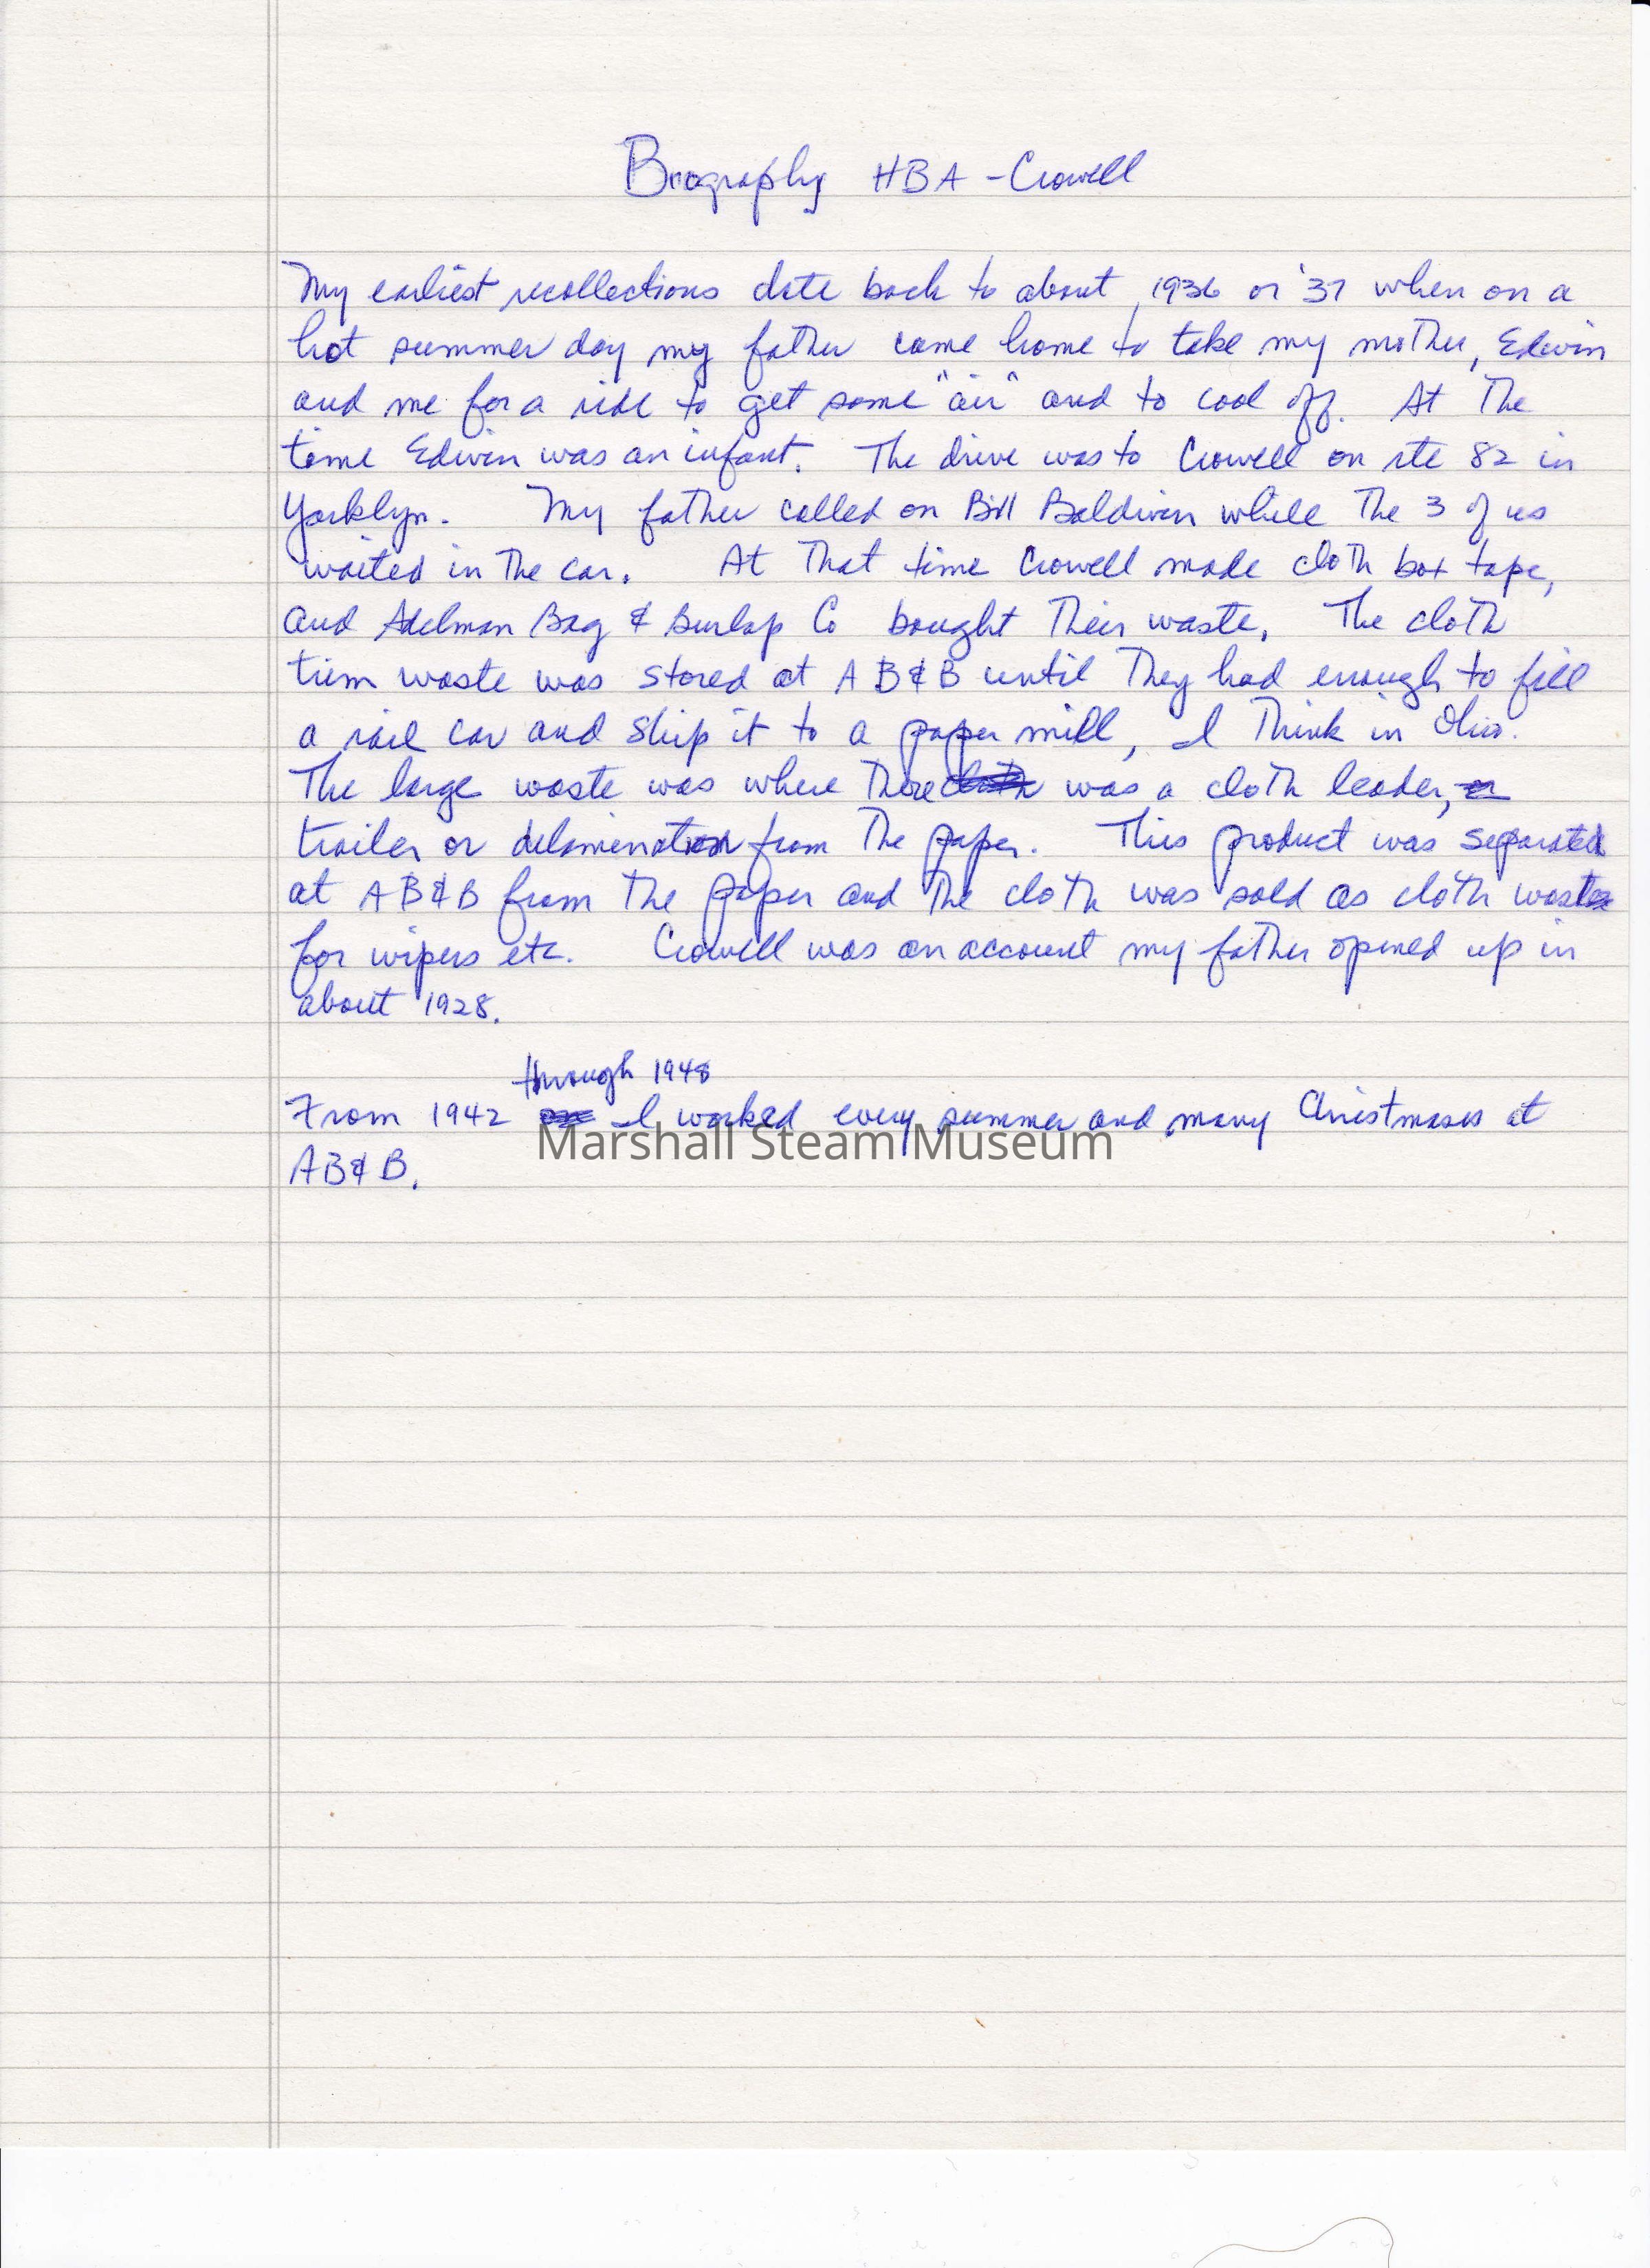 Biography HBA - Crowell
My earliest recollections date back to about 1936 or '37 when on a
hot summer day my father came home to take my mother, Edwin
and me for a ride to get some "air" and to cool off. At The
time Edwin was an infant. The drive was to Crowell on rte 82 in
Yorklyn. My father called on Bill Baldwin while The 3 of us
waited in The car. At That time Crowell made cloth box tape,
and Adelman Bag & Burlap Co bought Their waste. The cloth
trim waste was stored at AB&B until They had enough to fill
a rail car and ship it to a paper mill, I Think in Ohio.
The large waste was where There was a cloth leader,
trailer or delamination from The paper. This product was separated
at AB&B from The paper and The cloth was sold as cloth waste
for wipers etc. Crowell was an account my father opened up in
about 1928.
through 1948
From 1942 I worked every summer and many Christmases at
AB&B.
Marshall Steam Museum